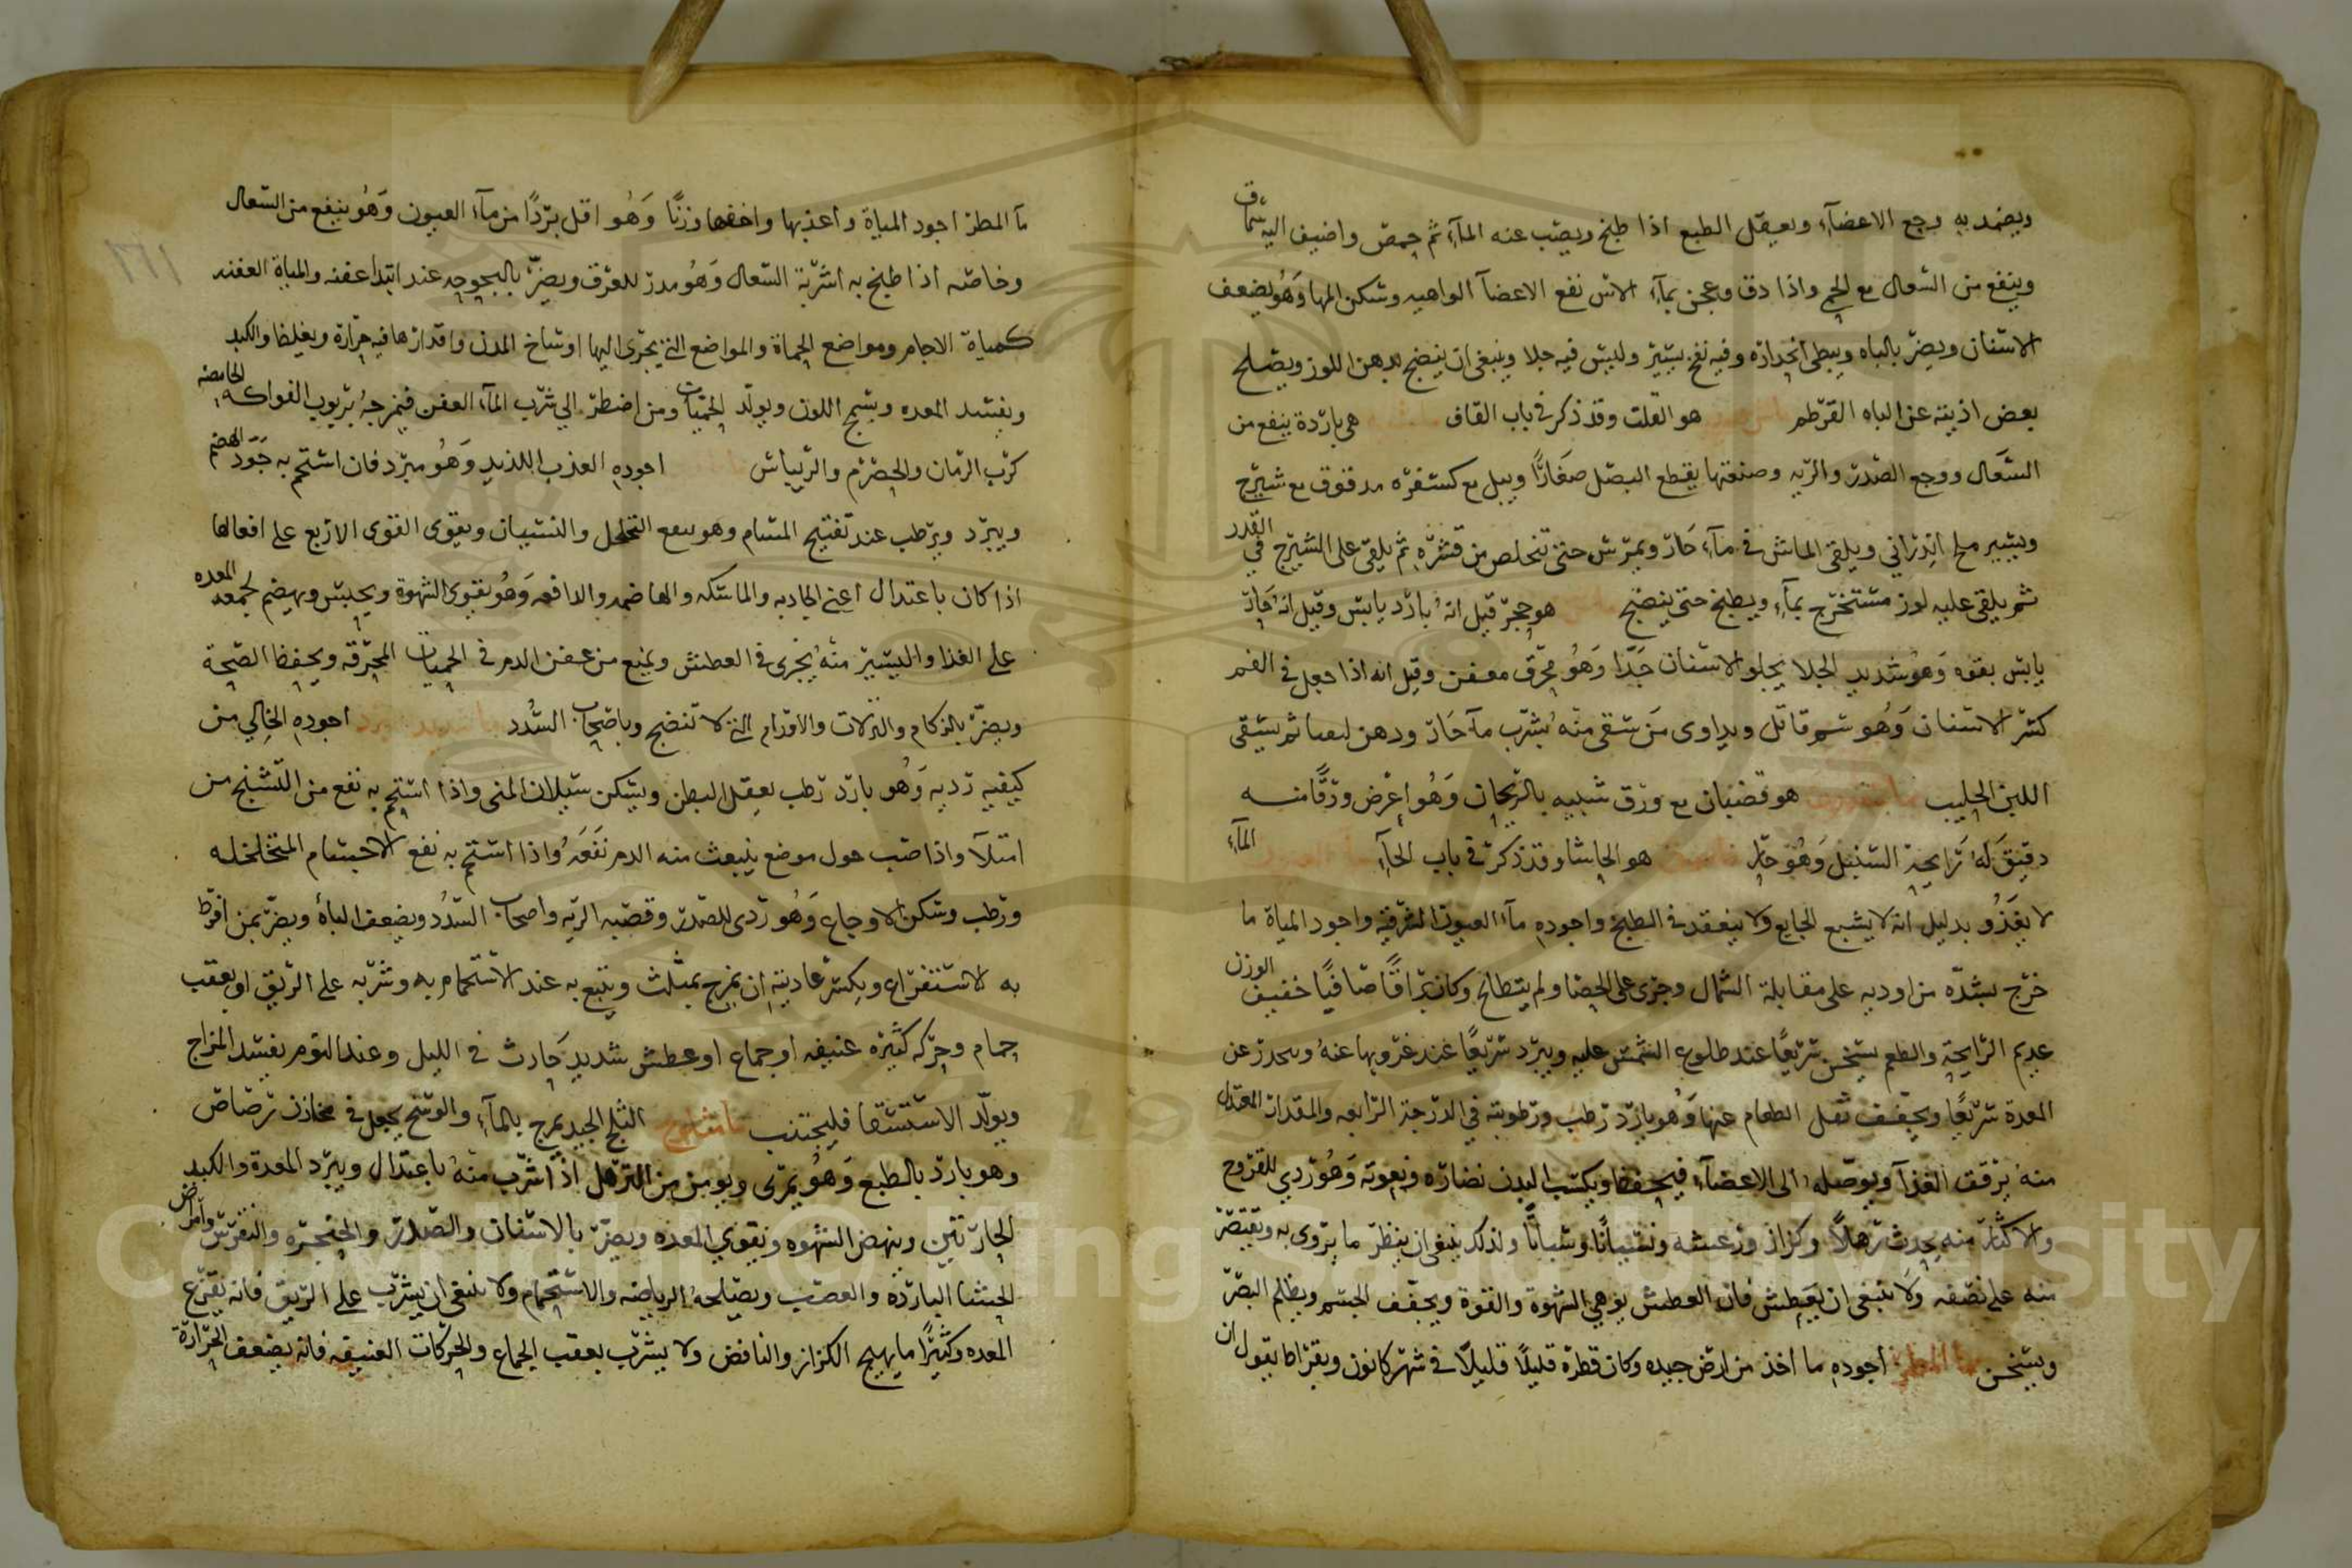 ويضمد به وجع الاعضآء ويعقل الطبع اذا طبخ ويصب عنه المآء ثم حمص واضيف اليه سماق
وينفع من السعال مع لحم واذا دق وعجن بمآء الاس نفع الاعضآ الواهيه وسكن المها وهو يضعف
الاسنان ويضر بالباه ويبطى انحداره وفيه نفخ يسير وليس فيه جلا وينبغى ان ينضج بدهن اللوز ويصلح
بعض اذيته عن الباه القرطم ماش هندى هو القلت وقد ذكر فى باب القاف هى باردة ينفع من
السعال ووجع الصدر والريه وصنعتها يقطع البصل صغارًا ويبل مع كسفره مدقوق مع شيرج
ويسير ملح اندرانى ويلقى الماش فى مآء حار ويمرس حتى تتخلص من قشره ثم يلقى على الشيرج فى القدر
ثم يلقى عليه لوز مستخرج بمآء ويطبخ حتى ينضج هو حجر قيل انه بارد يابس وقيل انه حار
يابس بقوه وهو شديد الجلا يجلو الاسنان جدًا وهو محرق معفن وقيل انه اذا جعل فى الفم
كسر الاسنان وهو سم قاتل ويداوى من سقى منه بشرب مآ حار ودهن ثم يسقى
اللبن الحليب هو قضبان مع ورق شبيه بالريحان وهو اعرض ورقًا منه
دقيق له رايحة السنبل وهو حار هو الحاشا وقد ذكر فى باب الحآء المآء
لا يغذو بدليل انه لا يشبع الجايع ولا ينعقد فى الطبخ واجوده مآء العيون الشرقية واجود المياة ما
خرج بشدة من اوديه على مقابلة الشمال وجرى على الحصا ولم يتطالح وكان براقًا صافيًا خفيف الوزن
عديم الرايحة والطعم يسخن سريعًا عند طلوع الشمس عليه ويبرد سريعًا عند غروبها عنه وينحدر عن
المعدة سريعًا ويجفف ثقل الطعام عنها وهو بارد رطب ورطوبته فى الدرجة الرابعه والمقدار المعتدل
منه يرقق الغذآ ويوصله الى الاعضآء فيحفظ ويكسب البدن نضاره ونعومة وهو ردي للقروح
والاكثار منه يحدث ترهلًا وكزاز ورعشه ونسيانًا وسباتًا ولذلك ينبغى ان ينظر ما يروى به ويقتصر
منه على نصفه ولا ينبغى ان يعطش فان العطش يوهى الشهوة والقوة ويجفف الجسم ويظلم البصر
ويسخن مآ المطر اجوده ما اخذ من ارض جيده وكان قطره قليلًا قليلًا فى شهر كانون وبقراط يقول ان
مآ المطر اجود المياة واعذبها واخفها وزنًا وهو اقل بردًا من مآء العيون وهو ينفع من السعال
وخاصه اذا طبخ به اشربة السعال وهو مدر للعرق ويضر بالبحوحه عند ابتدا عفنه والمياة العفنه
كمياة الاجام ومواضع الحماة والمواضع التى يجرى اليها اوساخ المدن واقدارها فيه حرارة ويغلظ والكبد
ويفسد المعده ويسمج اللون ويولد الحميات ومن اضطر الى شرب المآء العفن فيمزجه بربوب الفواكه الحامضه
كرب الرمان والحصرم والريباس اجوده العذب اللذيذ وهو مبرد فان استحم به جود الهضم
ويبرد ويرطب عند تفتيح المسام وهو ينفع التخلخل والنسيان ويقوى القوى الاربع على افعالها
اذا كان باعتدال اعنى الجادبه والماسكه والهاضمه والدافعه وهو يقوى الشهوة ويحبس ويهضم لجمعه المعده
على الغذا واليسير منه يجزى فى العطش ويمنع من عفن الدم فى الحميات المحرقه ويحفظ الصحة
ويضر بالزكام والنزلات والاورام التى لا تنضج وباصحاب السدد مآ شديد البرد اجوده الخالى من
كيفيه رديه وهو بارد رطب يعقل البطن ويسكن سيلان المنى واذا استحم به نفع من التشنج من
امتلآ واذا صب حول موضع ينبعث منه الدم نفعه واذا استحم به نفع الاجسام المتخلخله
ورطب وسكن الاوجاع وهو ردى للصدر وقصبه الريه واصحاب السدد ويضعف الباه ويضر بمن افرط
به الاستفراغ ويكسر عاديته ان يمزج بمثلث ويتبع به عند الاستحمام به وشربه على الريق او بعقب
حمام وحركه كثيره عنيفه او جماع او عطش شديد حادث فى الليل وعند النوم يفسد المزاج
ويولد الاستسقا فليجتنب مآ مثلوج الثلج الجيد يمزج بالمآء والوسخ يجعل فى مخازن رصاص
وهو بارد بالطبع وهو يمرى ويومن من الترهل اذا شرب منه باعتدال ويبرد المعدة والكبد
الحارتين وينهض الشهوه ويقوى المعده ويضر بالاسنان والصدر والحنجره والنقرس وامراض
الحشا البارده والعصب ويصلحه الرياضه والاستحمام ولا ينبغى ان يشرب على الريق فانه يقرع
المعده وكثيرًا ما يهيج الكزاز والنافض ولا يشرب بعقب الجماع والحركات العنيفه فانه يضعف الحرارة